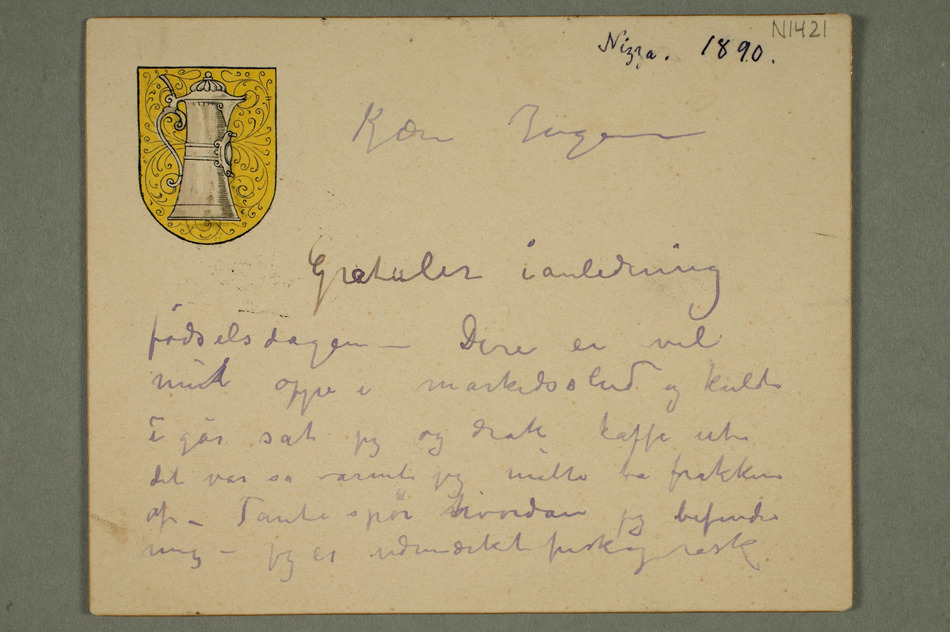 N1421
Nizza. 1890.
Kjære Inger
Gratuler i anledning
fødselsdagen — Dere er vel
midt oppe i markedsslud og kulde
i går sat jeg og drak kaffe ute
det var så varmt jeg måtte ta frakken
af — Tante spør hvordan jeg befinder
mig — jeg er udmærket frisk og rask